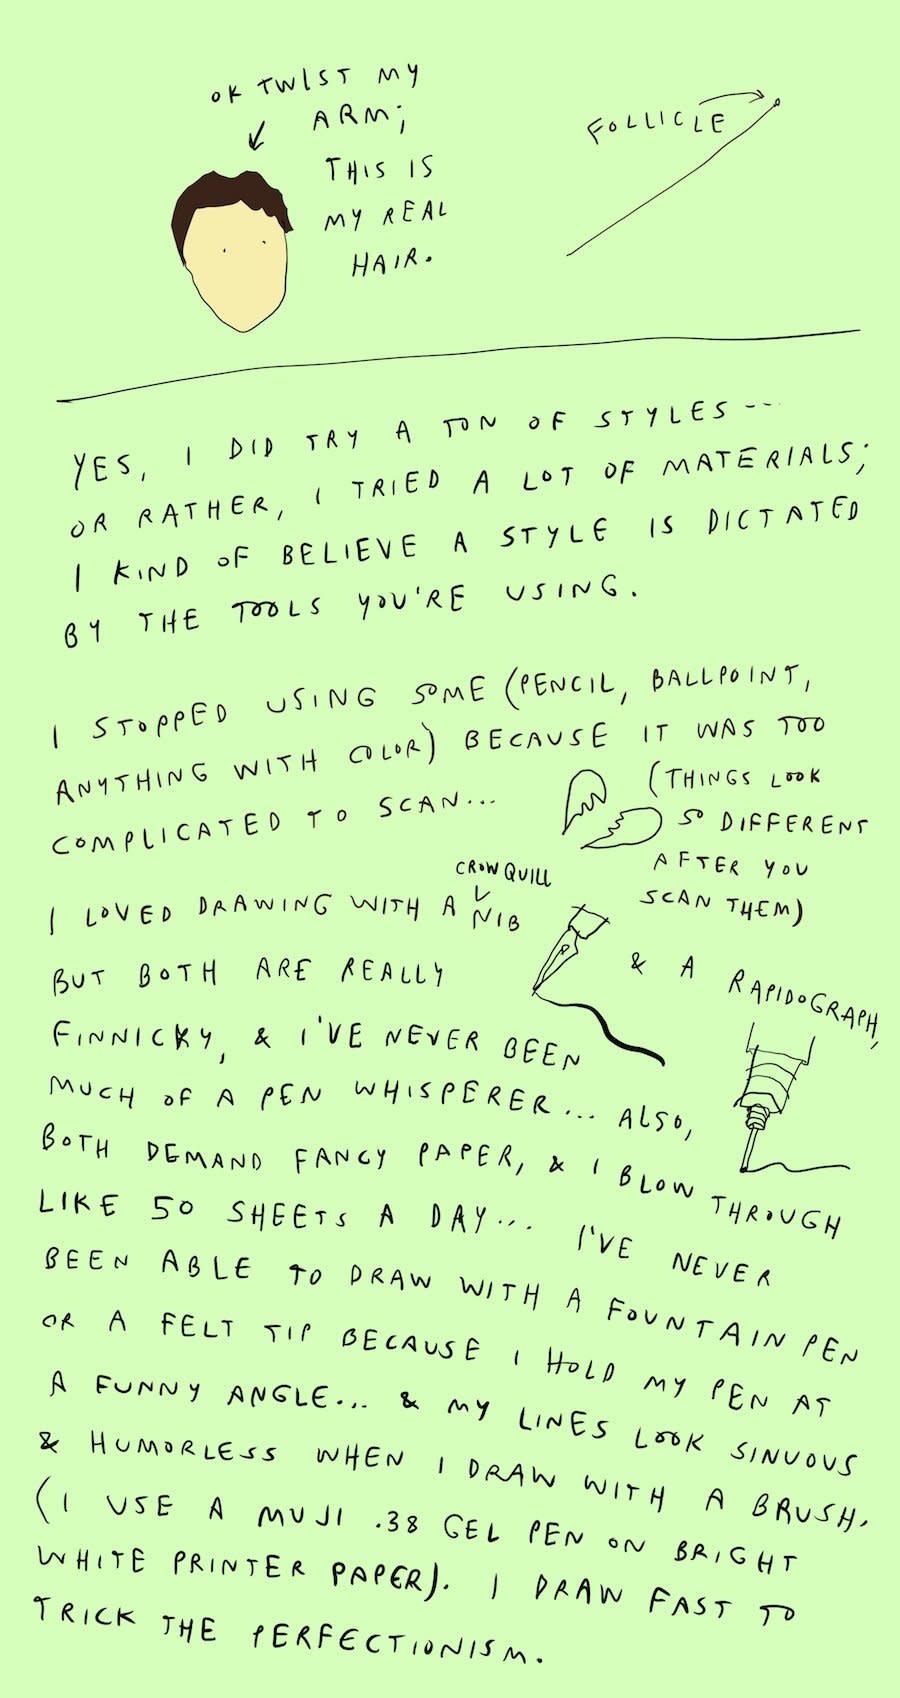 OK TWIST MY
ARM;
THIS IS
MY REAL
HAIR.
FOLLICLE
YES, I DID TRY A TON OF STYLES...
OR RATHER, I TRIED A LOT OF MATERIALS;
I KIND OF BELIEVE A STYLE IS DICTATED
BY THE TOOLS YOU'RE USING.
I STOPPED USING SOME (PENCIL, BALLPOINT,
ANYTHING WITH COLOR) BECAUSE IT WAS TOO
COMPLICATED TO SCAN...
(THINGS LOOK
SO DIFFERENT
AFTER YOU
SCAN THEM)
CROWQUILL
I LOVED DRAWING WITH A NIB
& A RAPIDOGRAPH,
BUT BOTH ARE REALLY
FINNICKY, & I'VE NEVER BEEN
MUCH OF A PEN WHISPERER... ALSO,
BOTH DEMAND FANCY PAPER, & I BLOW THROUGH
LIKE 50 SHEETS A DAY... I'VE NEVER
BEEN ABLE TO DRAW WITH A FOUNTAIN PEN
OR A FELT TIP BECAUSE I HOLD MY PEN AT
A FUNNY ANGLE... & MY LINES LOOK SINUOUS
& HUMORLESS WHEN I DRAW WITH A BRUSH.
(I USE A MUJI .38 GEL PEN ON BRIGHT
WHITE PRINTER PAPER). I DRAW FAST TO
TRICK THE PERFECTIONISM.